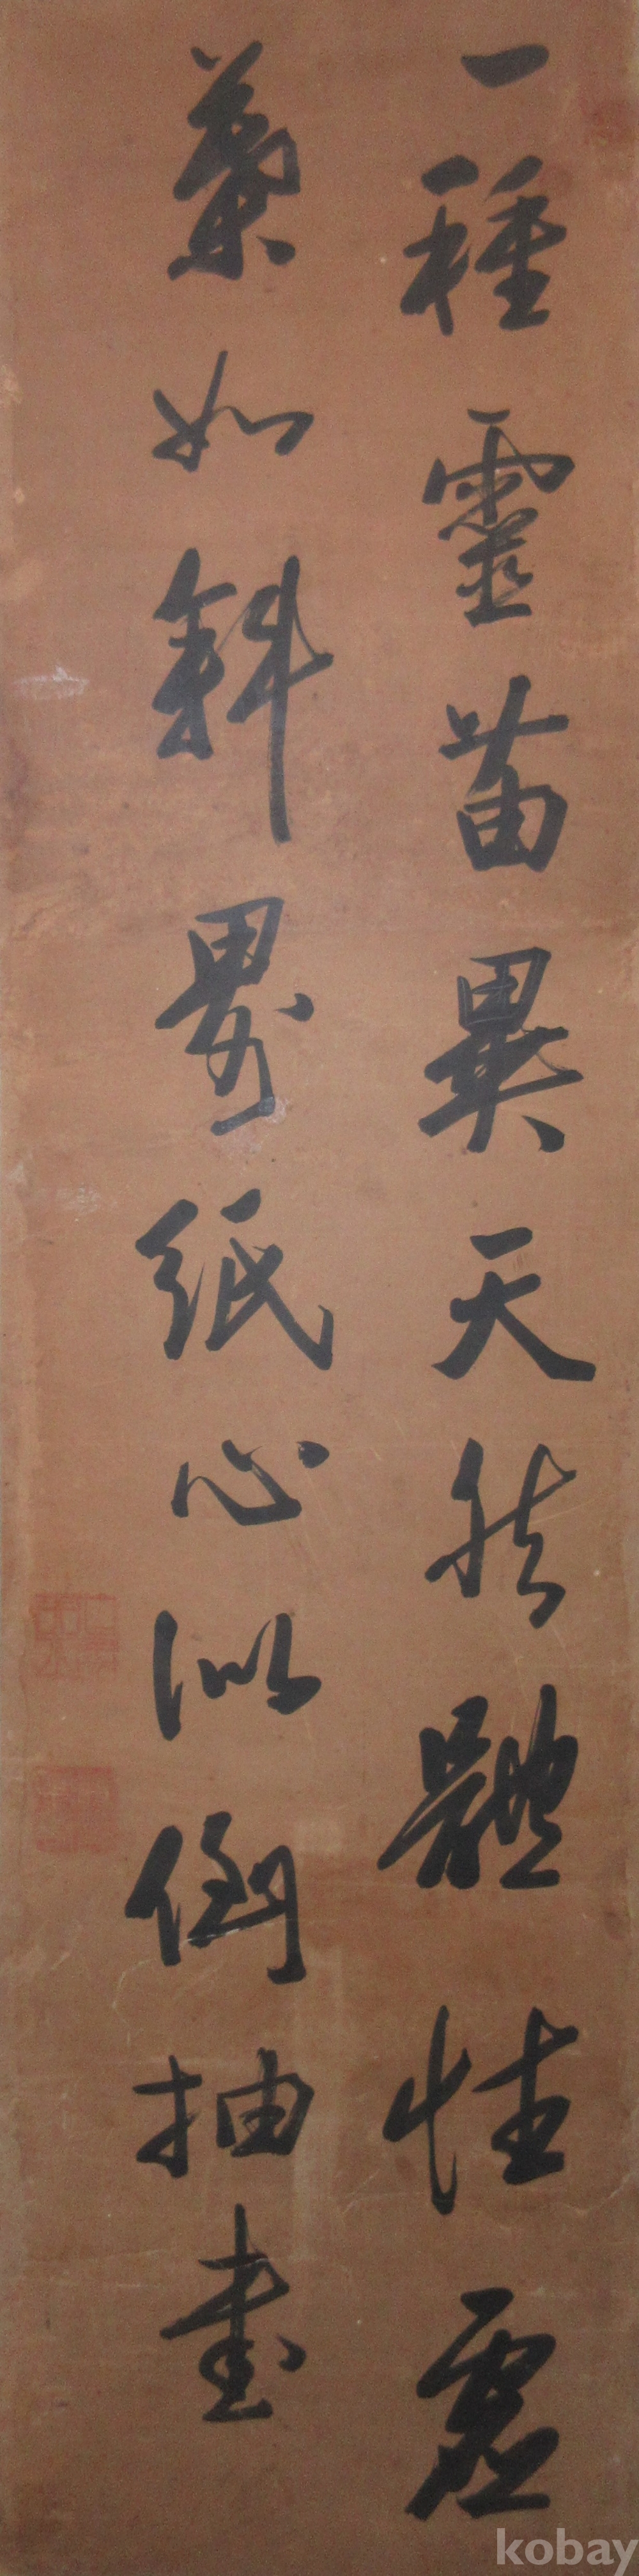 一種靈苗異天然體性虛
葉如斜界紙心似倒抽書
kobay